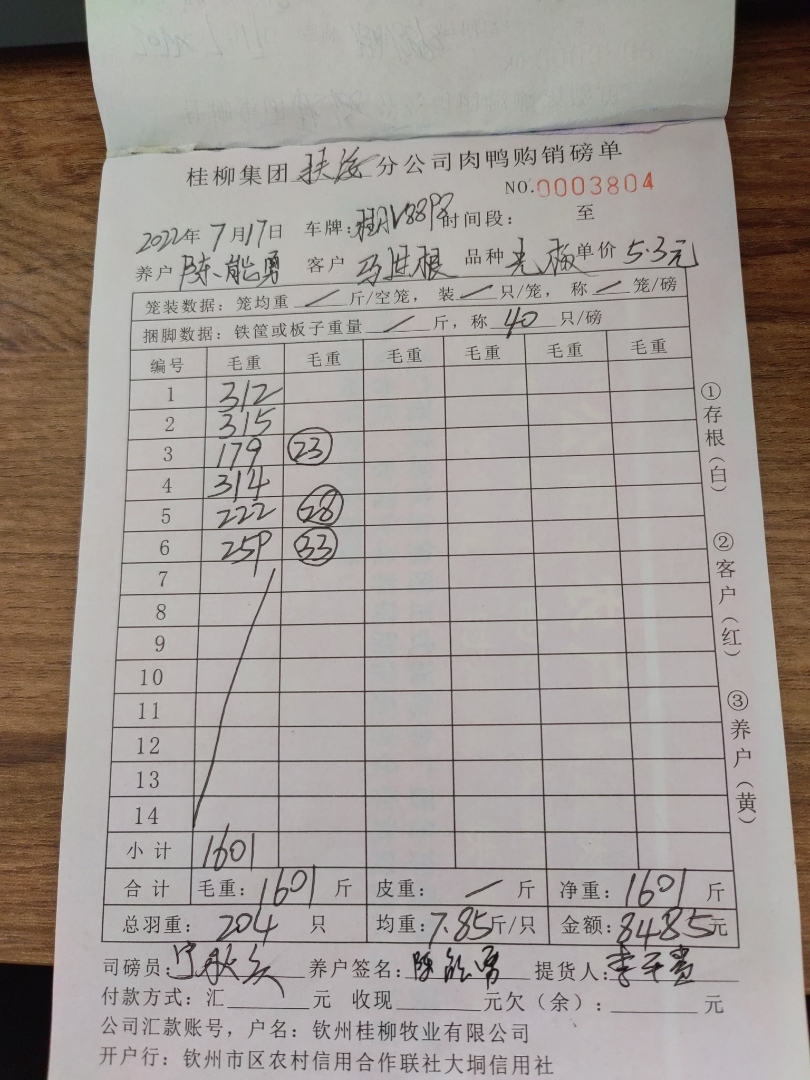 桂柳集团 扶海 分公司肉鸭购销磅单
NO.0003804
2022年 7月17日 车牌: 时间段: 至
养户 陈能勇 客户 马进根 品种 单价 5.3元
笼装数据: 笼均重 / 斤/空笼, 装 / 只/笼, 称 / 笼/磅
捆脚数据: 铁筐或板子重量 / 斤, 称 40 只/磅
编号 毛重 毛重 毛重 毛重 毛重 毛重
1 312
2 315
3 179 23
4 314
5 222 28
6 259 33
7
8
9
10
11
12
13
14
小计 1601
合计 毛重: 1601 斤 皮重: / 斤 净重: 1601 斤
总羽重: 204 只 均重: 7.85斤/只 金额: 8485元
司磅员: 养户签名: 陈能勇 提货人:
付款方式: 汇 元 收现 元欠(余): 元
公司汇款账号, 户名: 钦州桂柳牧业有限公司
开户行: 钦州市区农村信用合作联社大垌信用社
①存根(白)
②客户(红)
③养户(黄)